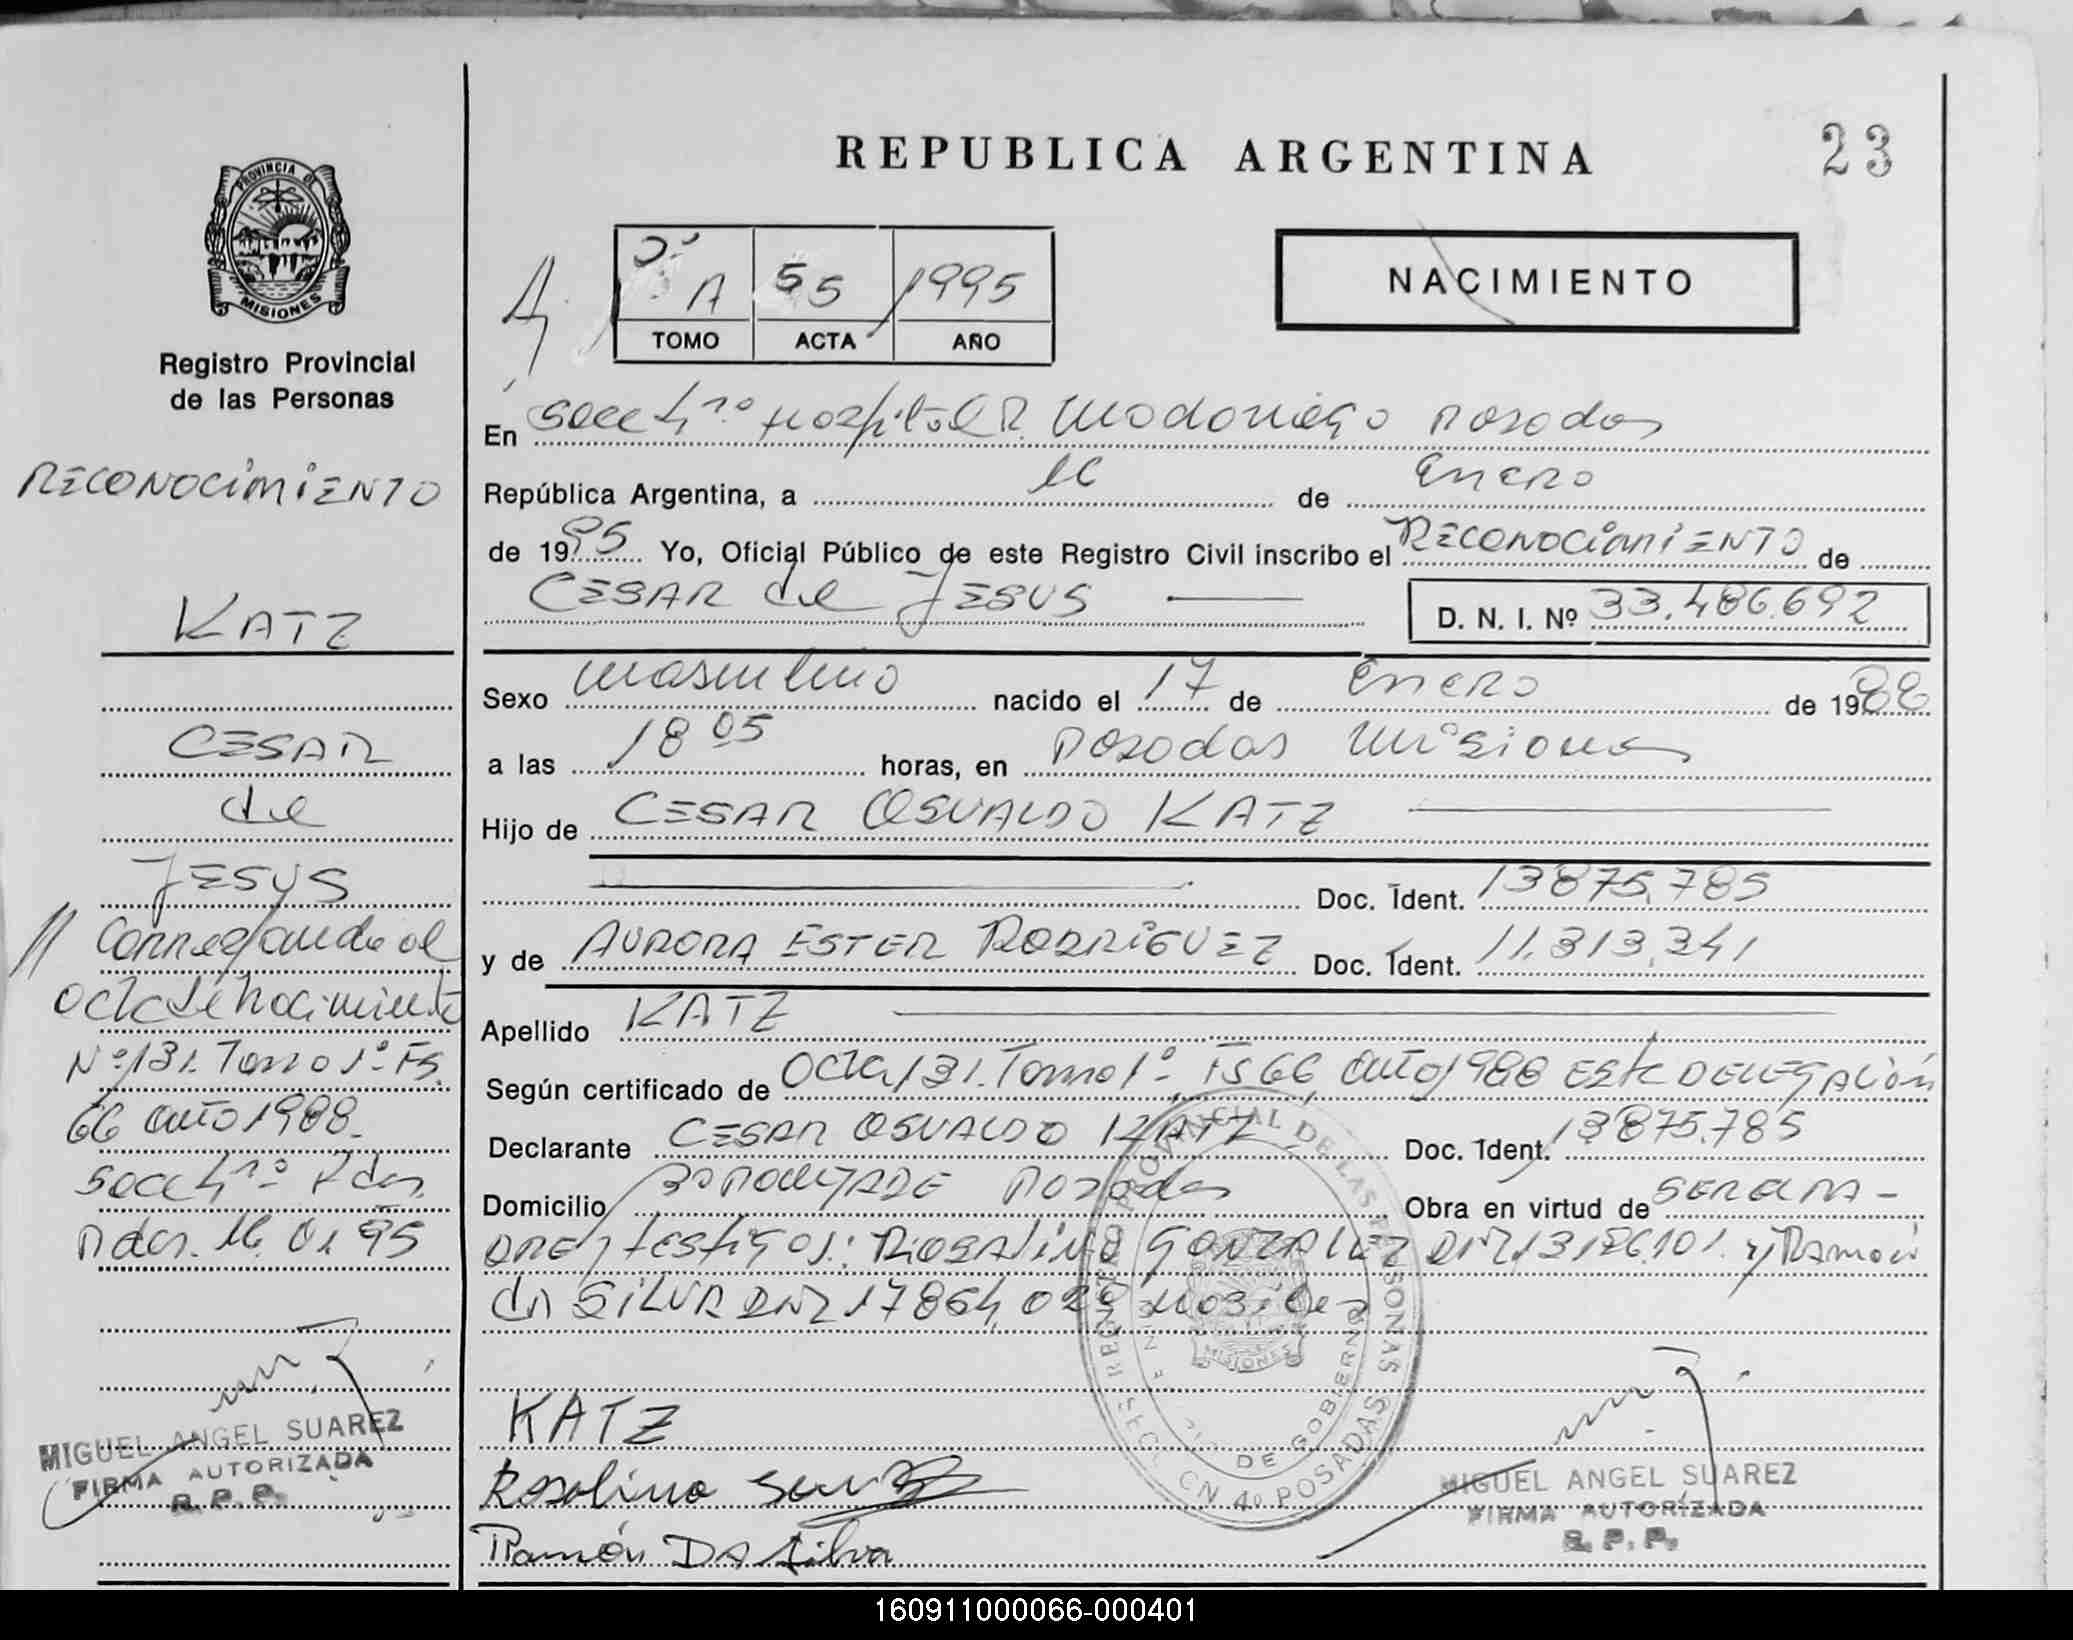 REPUBLICA ARGENTINA
23
PROVINCIA DE
MISIONES
Registro Provincial
de las Personas
A 55 1995
TOMO ACTA AÑO
NACIMIENTO
En Secc 4ta Hospital R. Madariaga Posadas
República Argentina, a 16 de Enero
de 1995 Yo, Oficial Público de este Registro Civil inscribo el RECONOCIMIENTO de
CESAR de JESUS
D. N. I. Nº 33.486.692
Sexo masculino nacido el 17 de Enero de 1988
a las 18 05 horas, en Posadas Misiones
Hijo de CESAR OSVALDO KATZ
Doc. Ident. 13875.785
y de AURORA ESTER RODRIGUEZ Doc. Ident. 11.313.341
Apellido KATZ
Según certificado de Acta 131. Tomo 1º Fs 66 año 1988 Esta DELEGACIón
Declarante CESAR OSVALDO KATZ Doc. Ident. 13875.785
Domicilio Posadas Obra en virtud de
testigos: ROSALINO GONZALEZ y Ramón
da SILVA DNI 17864,02
KATZ
Rosalino
Ramón Da Silva
REGISTRO PROVINCIAL DE LAS PERSONAS
SECCION 4º POSADAS
DE GOBIERNO
MISIONES
MIGUEL ANGEL SUAREZ
FIRMA AUTORIZADA
R. P. P.
RECONOCIMIENTO
KATZ
CESAR
de
JESUS
// Corresponde al
Acta de nacimiento
Nº 131. Tomo 1º Fs.
66 año 1988.
Secc 4ta Pdas.
Pdas. 16. 01 95
MIGUEL ANGEL SUAREZ
FIRMA AUTORIZADA
R. P. P.
160911000066-000401